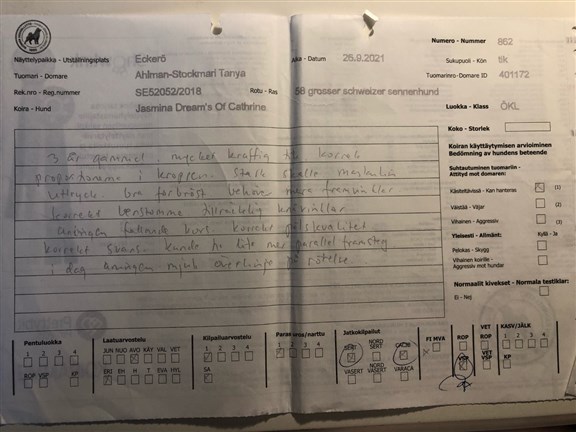 Näyttelypaikka - Utställningsplats Eckerö Aika - Datum 26.9.2021 Numero - Nummer 862
Tuomari - Domare Ahlman-Stockmari Tanya Sukupuoli - Kön tik
Tuomarinro- Domare ID 401172
Rek.nro - Reg.nummer SE52052/2018 Rotu - Ras 58 grosser schweizer sennenhund
Koira - Hund Jasmina Dream's Of Cathrine Luokka - Klass ÖKL
Koko - Storlek
Koiran käyttäytymisen arvioiminen
Bedömning av hundens beteende
Suhtautuminen tuomariin -
Attityd mot domaren:
Käsiteltävissä - Kan hanteras (1)
Väistää - Väjer (2)
Vihainen - Aggressiv (3)
Yleisesti - Allmänt: Kyllä - Ja
Pelokas - Skygg
Vihainen koirille -
Aggressiv mot hundar
Normaalit kivekset - Normala testiklar:
Ei - Nej
3 år gammal mycket kraftig tik korrekt
proportionerna i kroppen. Stark skalle maskulin
uttryck bra förbröst behöver mera framvinklar
korrekt benstomme tillräcklig knävinklar
aningen fallande kors korrekt pälskvalitet
korrekt svans. kunde ha lite mer parallel framsteg
i dag aningen mjuk överlinje på rörelse.
Pentuluokka
1 2 3 4
ROP VSP KP
Laatuarvostelu
JUN NUO AVO KÄY VAL VET
ERI EH H T EVA HYL
Kilpailuarvostelu
1 2 3 4
SA
Paras uros/narttu
1 2 3 4
Jatkokilpailut
SERT NORD SERT CACIB
VASERT NORD VASERT VARACA
FI MVA
ROP
VSP
VET ROP
VET VSP
KASV/JÄLK
1 2 3 4
KP